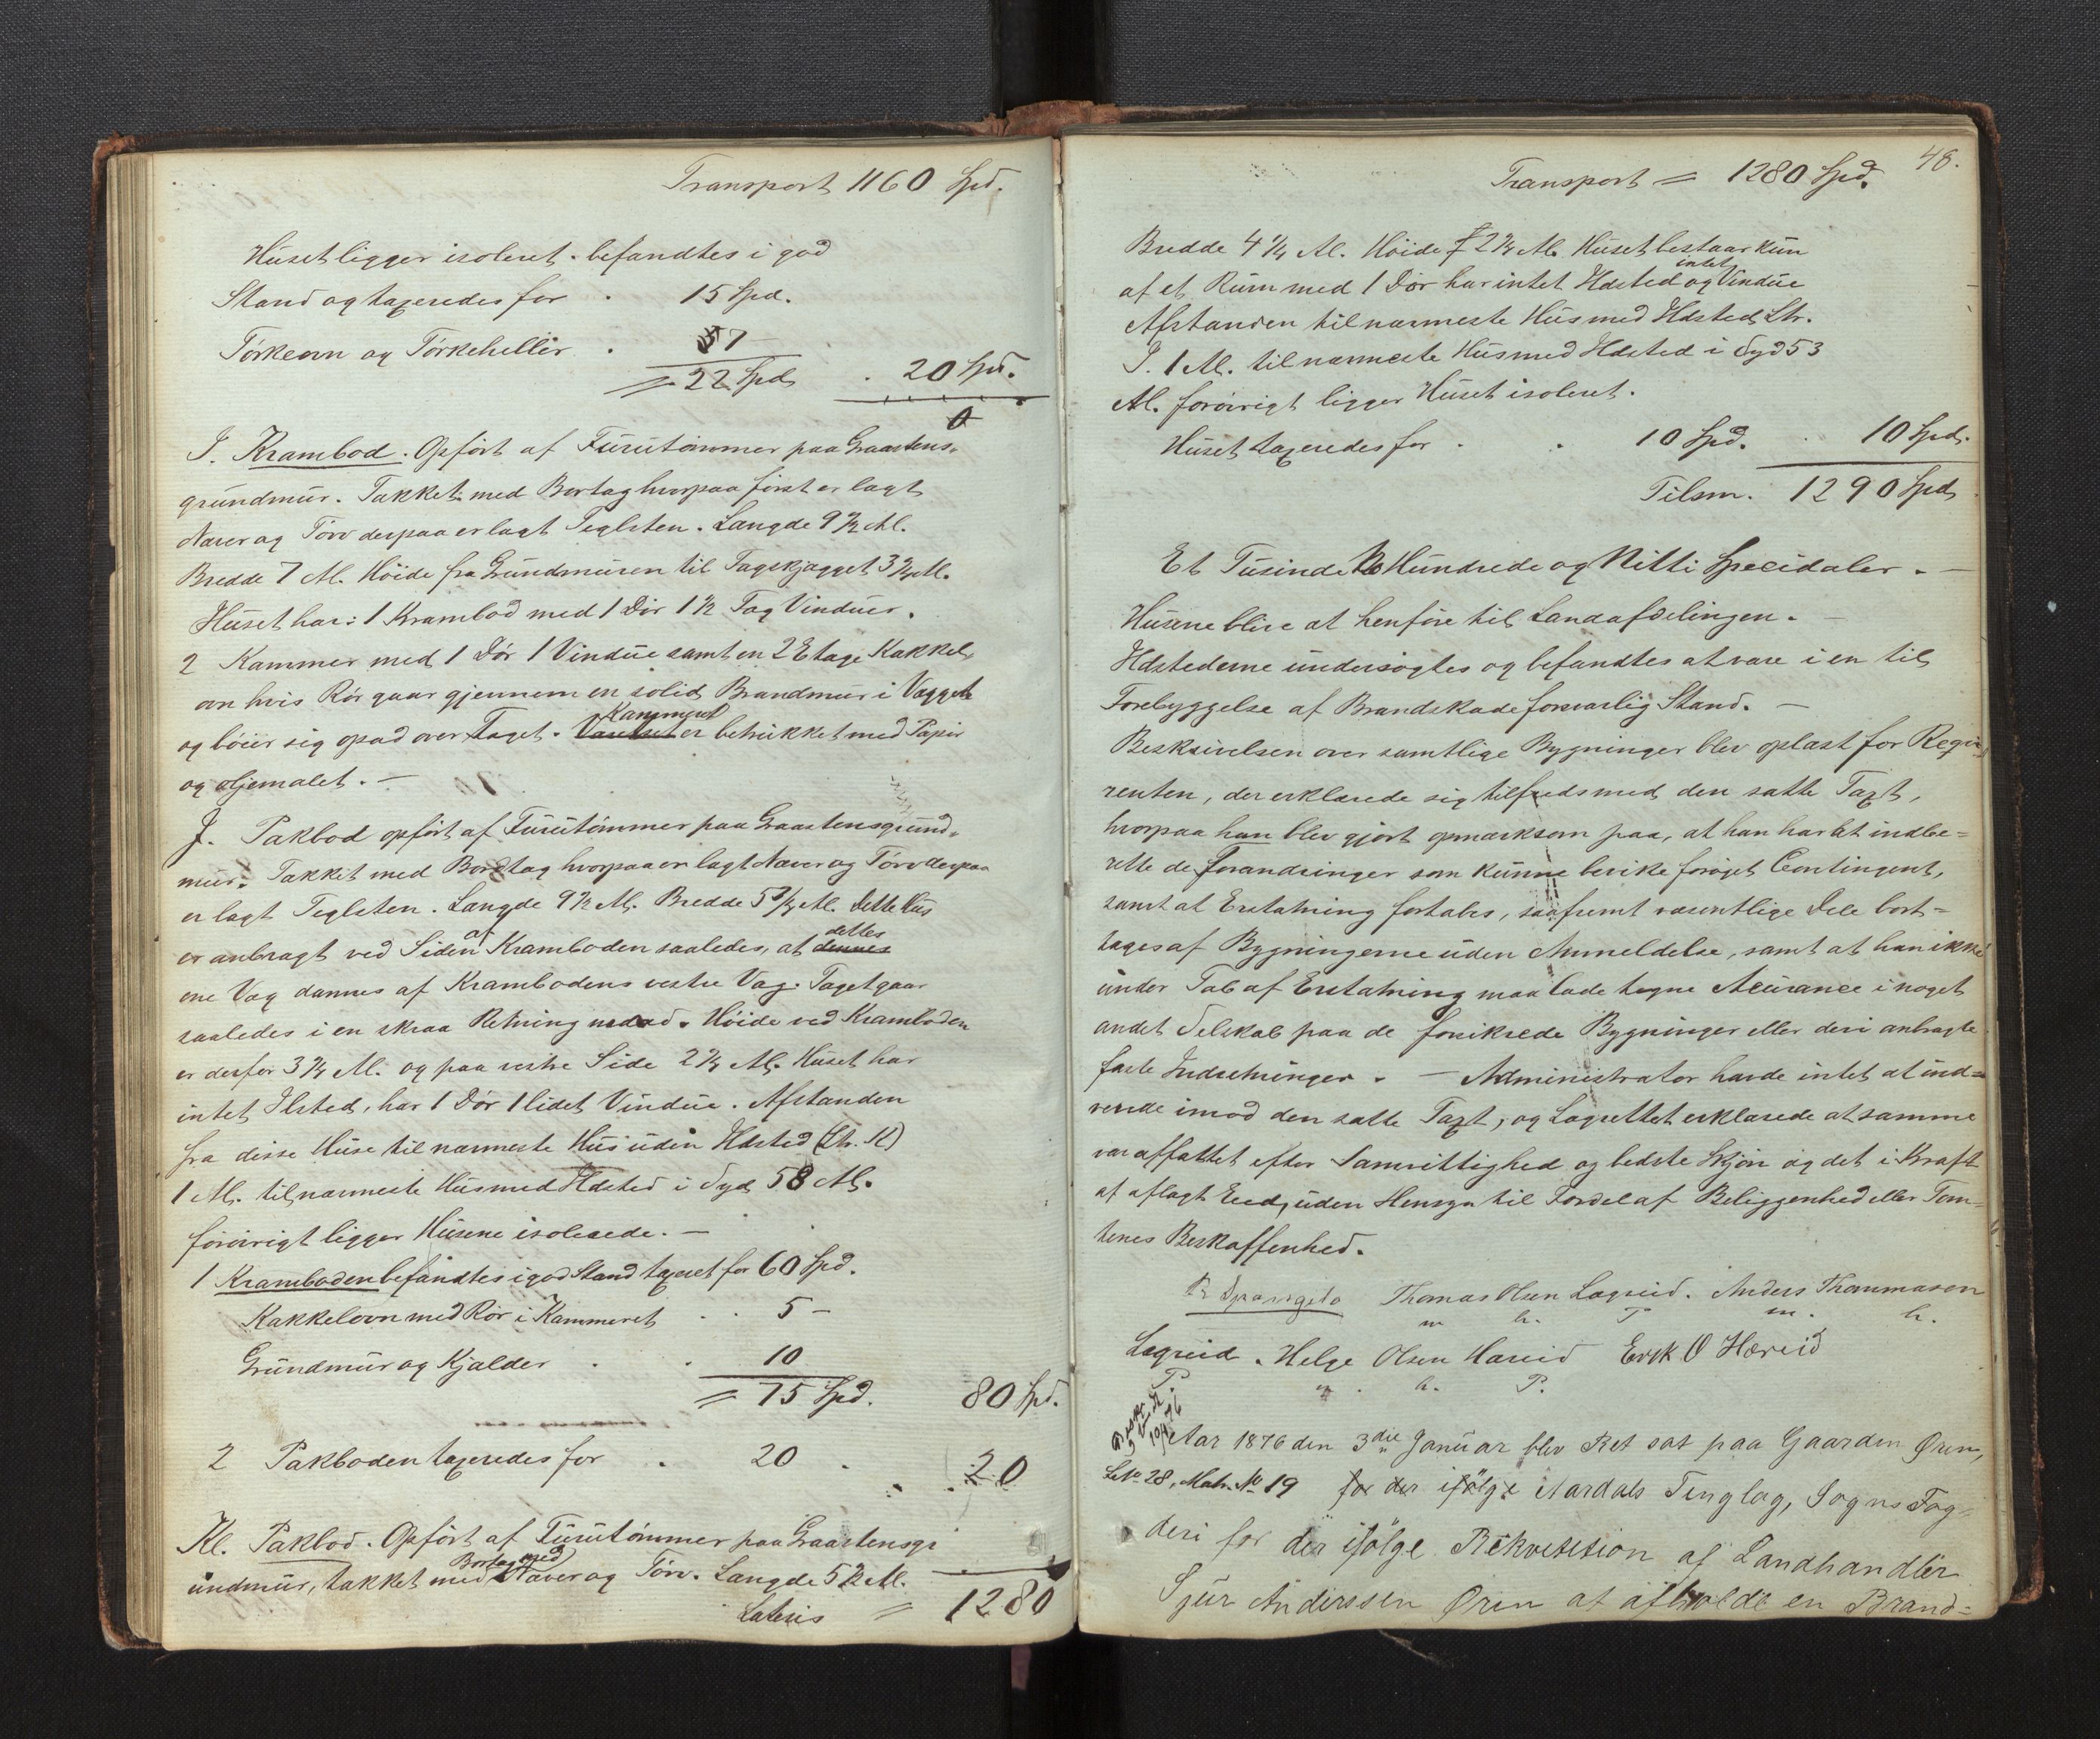 Transport 1160 Spd.
Huset ligger isoleret. befandtes i god
Stand og taxeredes for . 15 Spd.
Törkeovn og Törkeheller . 7
= 22 Spd. . 20 Spd.
0
I. Krambod. Opfört af Furutömmer paa Graastens-
grundmur. Takket med Bortag hvorpaa först er lagt
Næver og Törv derpaa er lagt Teglsten. Længde 9 1/2 Al.
Bredde 7 Al. Höide fra Grundmuren til Tagskjægget 3 3/4 Al.
Huset har: 1 Krambod med 1 Dör 1 1/2 Fag Vinduer.
2 Kammer med 1 Dör 1 Vindue samt en 2 Etage Kakkel-
ovn hvis Rör gaar gjennem en solid Brandmur i Vægget
og böier sig opad over Taget. Værelset Kammeret er betrukket med Papir
og oljemalet. —
J. Pakbod opfört af Furutömmer paa Graastensgrund-
mur. Takket med Bordtag hvorpaa er lagt Næver og Törv derpaa
er lagt Teglsten. Længde 9 1/2 Al. Bredde 5 3/4 Al. Dette Hus
er anbragt ved Siden af Kramboden saaledes, at dennes dettes
ene Væg dannes af Krambodens vestre Væg. Taget gaar
saaledes i en skraa Retning nedad. Höide ved Kramboden
er derfor 3 3/4 Al. og paa vestre Side 2 3/4 Al. Huset har
intet Ilsted, har 1 Dör 1 lidet Vindue. Afstanden
fra disse Huse til nærmeste Hus uden Ildsted (Ltr. K)
1 Al. til nærmeste Hus med Ildsted i Syd 58 Al.
forövrigt ligger Husene isolerede. —
1 Kramboden befandtes i god Stand taxeret for 60 Spd.
Kakkelovn med Rör i Kammeret . . 5 —
Grundmur og Kjælder . . 10
= 75 Spd. 80 Spd.
2 Pakboden taxeredes for . 20 . . . 20
Kl. Pakbod. Opfört af Furutömmer paa Graastensgr
undmur, takket med Bortag med Næver og Törv. Længde 5 1/2 Al.
Lateris = 1280
48.
Transport = 1280 Spd.
Bredde 4 1/4 Al. Höide 2 3/4 Al. Huset bestaar kun
af et Rum med 1 Dör har intet Ildsted og intet Vindue
Afstanden til nærmeste Hus med Ildsted Ltr.
I. 1 Al. til nærmeste Hus med Ildsted i Syd 53
Al. forövrigt ligger Huset isoleret.
Huset taxeredes for . . 10 Spd. . 10 Spd.
Tilsm. 1290 Spd
Et Tusinde To Hundrede og Nitti Speeidaler. —
Husene blive at henföre til Landafdelingen. —
Ildstederne undersögtes og befandtes at være i en til
Forebyggelse af Brandskade forsvarlig Stand. —
Beskrivelsen over samtlige Bygninger blev oplæst for Reqvi-
renten, der erklærede sig tilfreds med den satte Taxt,
hvorpaa han blev gjort opmærksom paa, at han har at indbe=
rette de Forandringer som kunne bevirke foröget Contingent,
samt at Erstatning fortabes, saafremt væsentlige Dele bort=
tages af Bygningerne uden Anmeldelse, samt at han ikke
under Tab af Erstatning maa lade tegne Assurance i noget
andet Selskab paa de forsikrede Bygninger eller deri anbragte
faste Indretninger. — Administrator havde intet at ind=
vende imod den satte Taxt, og Lagrettet erklærede at samme
var affattet efter Samvittighed og bedste Skjön og det i Kraft
af aflagt Eed, uden Hensyn til Fordel af Beliggenhed eller Tom-
tenes Beskaffenhed.
Thomas Olsen Lægreid. Anders Thommasen
m. h. P. m. h.
Lægreid. Helge Olsen Hæreid Erik O Hæreid
P. m. h. P.
Aar 1876 den 3die Januar blev Ret sat paa Gaarden Øren,
L. No 28, Matr. No 19 for der ifölge Aardals Tinglag, Sogns Fog-
deri for der ifölge Rekvisition af Landhandler
Sjur Anderssen Øren at afholde en Brand=